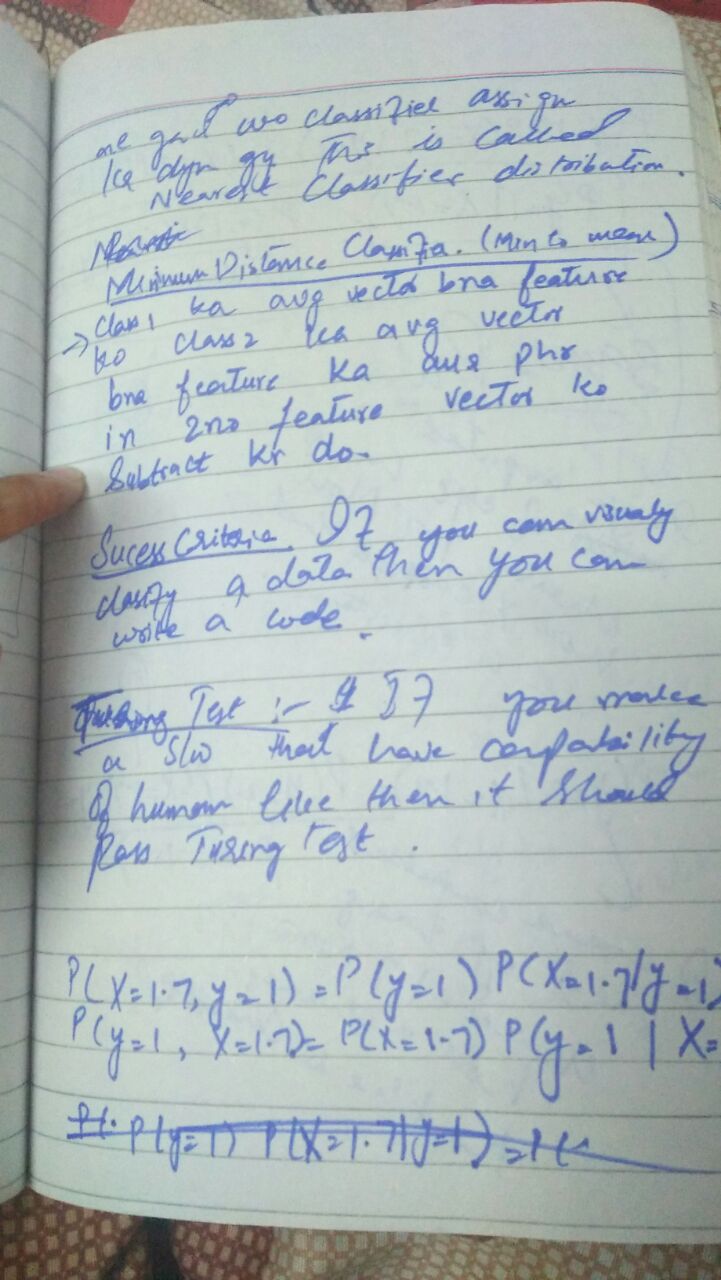 wo classifier assign
ka dyn gy This is called
Nearest Classifier distribution.
Minimum Distance Classifia. (Min to mean)
→ Class 1 ka avg vector bna feature
ko class 2 ka avg vector
bna feature ka aur phr
in 2no feature vector ko
Subtract kr do.
Sucess Criteria. If you can visualy
clasify a data then you can
write a code.
Turing Test :- If you make
a S/W that have
of human like then it should
Pass Turing Test.
P(X=1.7, y=1) = P(y=1) P(X=1.7|y=1)
P(y=1, X=1.7)= P(X=1.7) P(y=1 | X=
P(y=1) P(X=1.7|y=1) = P(